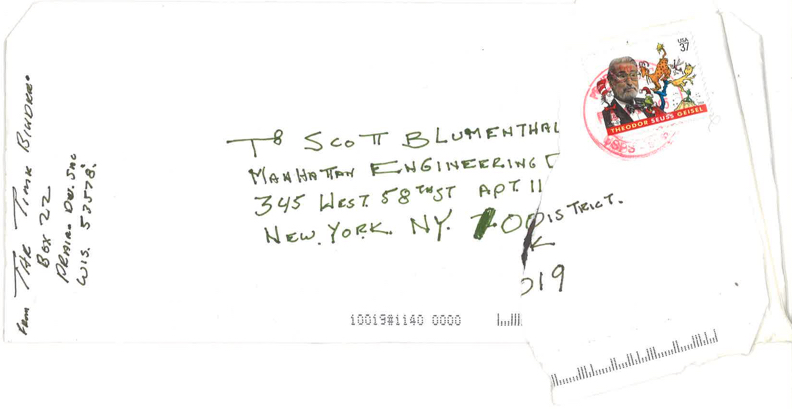 FROM THE TIME BINDER.
BOX 22
PRAIRE DU. SAC
WIS. 53578.
USA
37
THEODOR SEUSS GEISEL
USPS
TO SCOTT BLUMENTHAL
MANHATTAN ENGINEERING D
ISTRICT.
345 WEST 58TH ST APT 11
K
NEW. YORK. NY. 100
019
10019#1140 0000